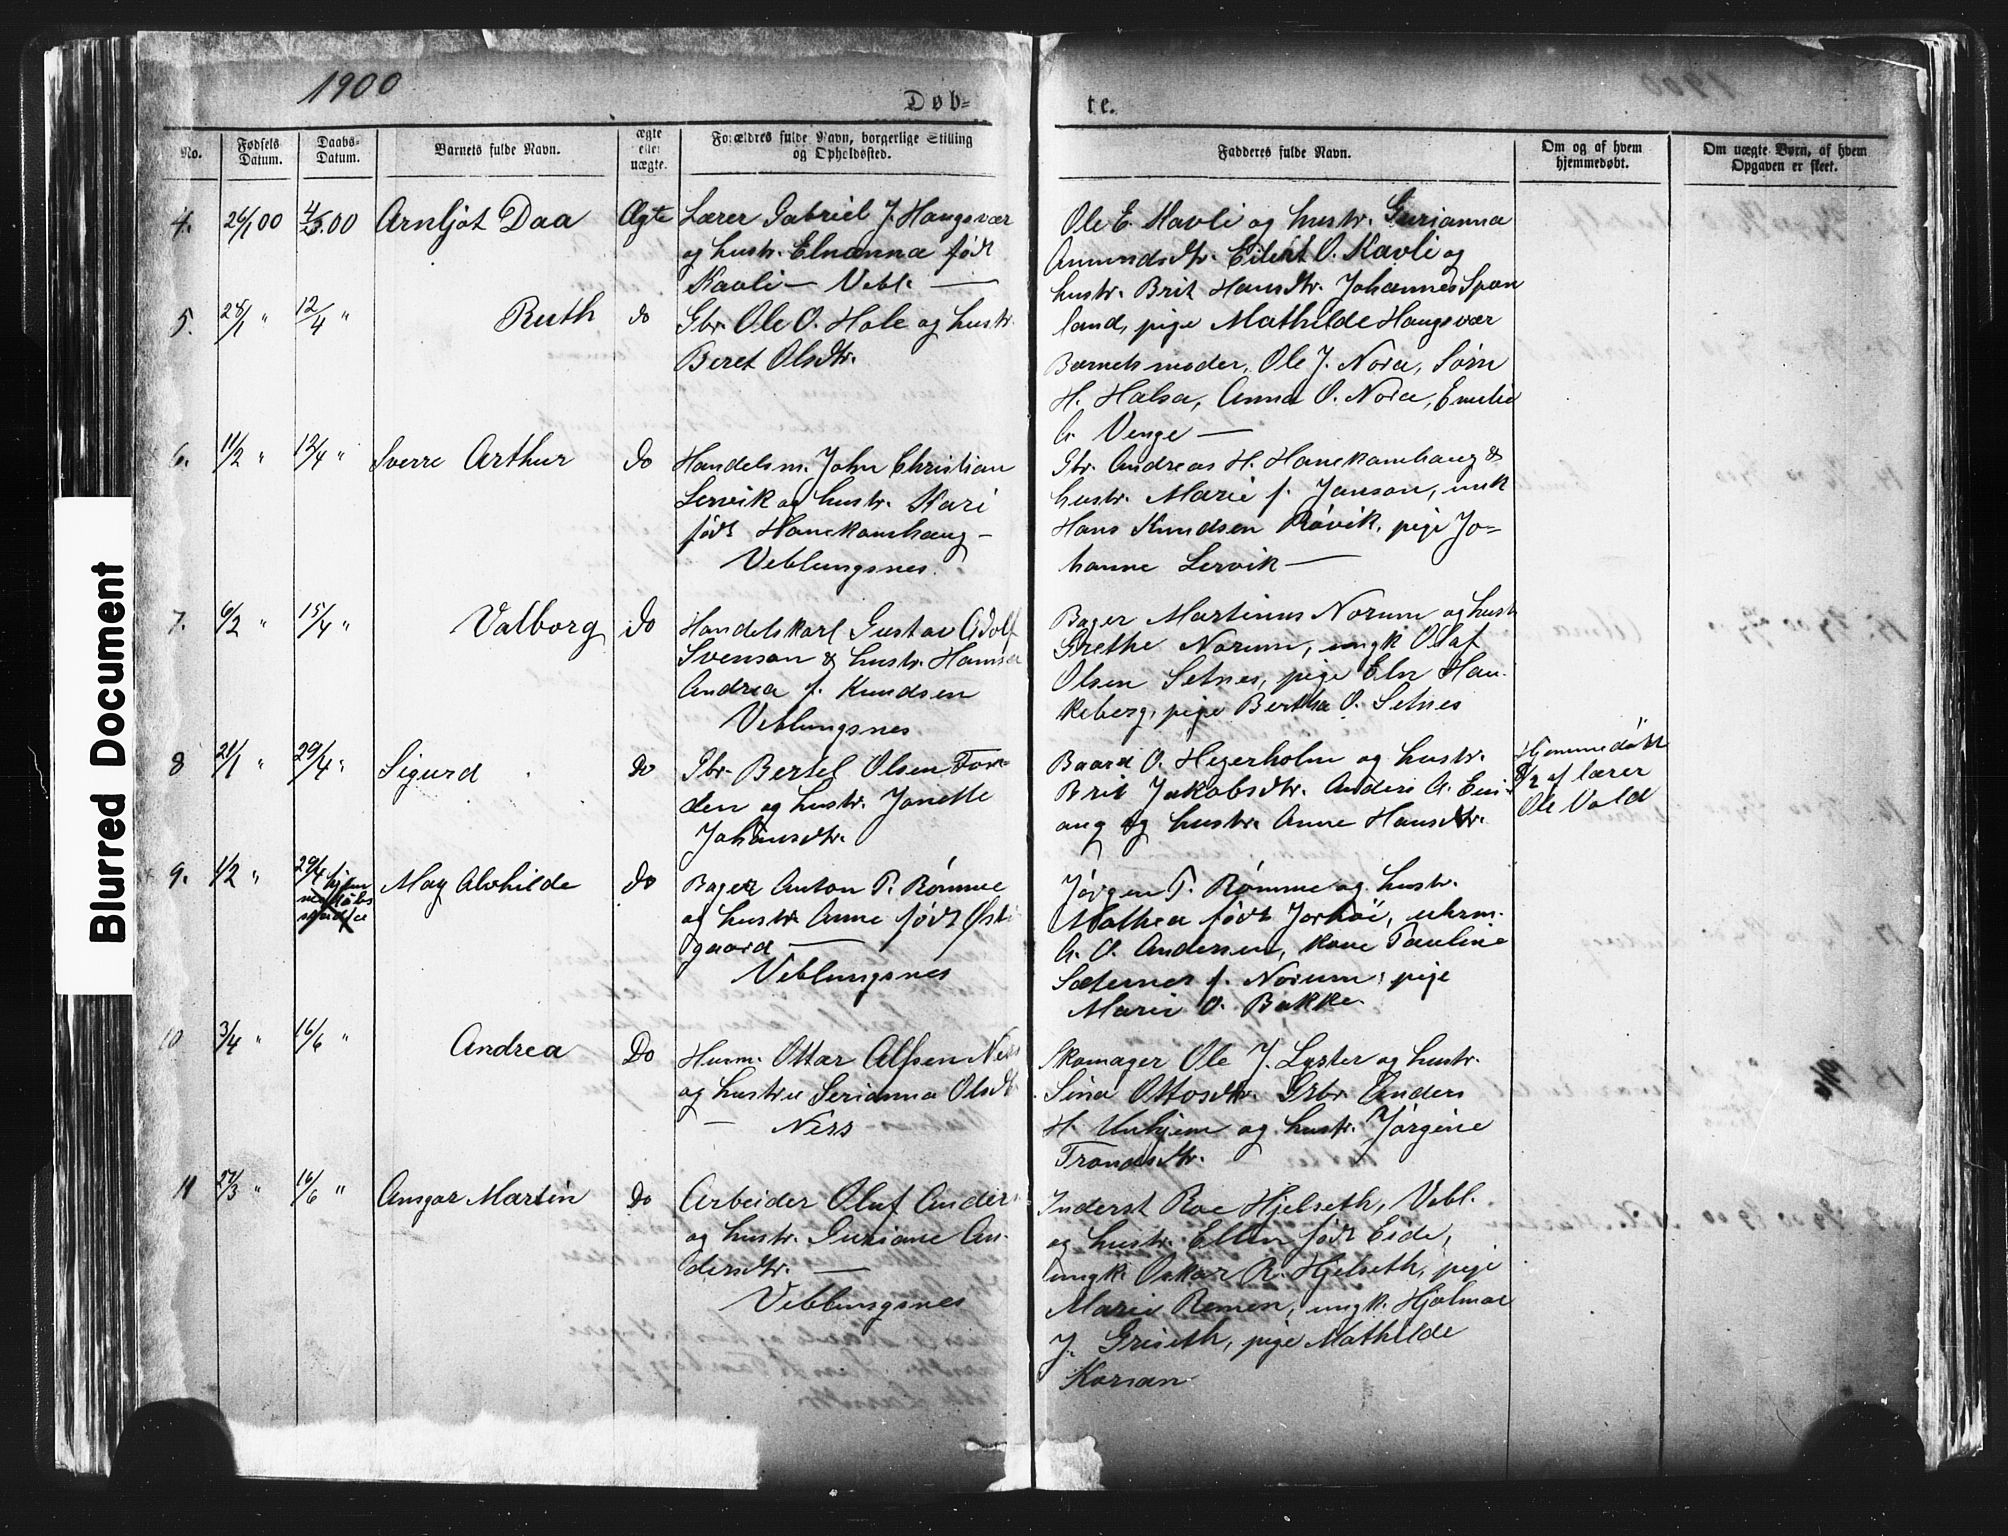 Blurred Document
1900
Døb-
te.
1900
No.
Fødsels Datum.
Daabs-Datum.
Barnets fulde Navn.
ægte eller uægte.
Forældres fulde Navn, borgerlige Stilling
og Opholdssted.
Fadderes fulde Navn.
Om og af hvem
hjemmedøbt.
Om uægte Børn, af hvem
Opgaven er skeet.
4. 26/1 00 00 Arnljot Daa Ægte Lærer Gabriel J. Haugsvær
og hustr. Elnanna født
Kavli — Vebl. —
Ole E. Kavli og hustr. Gurianna
Amundsdtr. Eilert O. Kavli og
hustr. Brit Hansdtr. Johannes Span
land, pige Mathilde Haugsvær
5. 28/1 " 12/4 " Ruth do Gbr. Ole O. Hole og hustr.
Beret Olsdtr.
Barnets moder, Ole J. Nora, Søren
H. Halsa, Anna O. Nora, Emilie
Venge —
6. 11/2 " 12/4 " Sverre Arthur do Handelsm. John Christian
Lervik og hustr. Kari
født Hanekamhaug —
Veblungsnes.
Gbr. Andreas H. Hanekamhaug &
hustr. Marie f. Janson, unk
Hans Knudsen Røvik, pige Jo-
hanne Lervik —
7. 6/2 " 15/4 " Valborg do Handelskarl Gustav Adolf
Svenson & hustr. Hansa
Andrea f. Knudsen
Veblungsnes
Bager Martinus Norum og hust
Grethe Norum, ungk Olaf
Olsen Setnes, pige Eln Hau-
keberg, pige Bertha O. Setnes
8 21/1 " 29/4 " Sigurd do Gbr. Bertel Olsen Ton-
den og hustr. Janette
Johansdtr.
Baard O. Hegerholm og hustr.
Brit Jakobsdtr. Anders A. Ein-
ang og hustr. Anne Hansdtr.
Hjemmedøbt
8/2 af lærer
Ole Vold
9. 1/2 " 29/4 May Alvhilde do Bager Anton T. Rømme
og hustr Anne født Øst
gaard —
Veblungsnes
Jørgen T. Rømme og hustr.
Mathea født Jorhøi, uhrm.
A. O. Andersen, kone Pauline
Sæternes f. Norum, pige
Marie O. Bakke
10 3/4 " 16/6 " Andrea Do Husm. Ottar Alfsen Ness
og hustru Serianna Olsdt
— Ness
Skomager Ole J. Lyster og hustr.
Sina Ottosdtr. Grbr. Anders
H. Unhjem og hustr. Jørgine
Trondsdtr.
11 27/3 " 16/6 " Ansgar Martin Do Arbeider Oluf Anders
og hustr. Guriane An-
dersdtr. —
Veblungsnes
Inderst Roe Hjelseth, Vebl.
og hustr. Ellen født Eide,
ungk. Oskar R. Hjelseth, pige
Marie Remen, ungk. Hjalmar
J. Griseth, pige Mathilde
Korsan